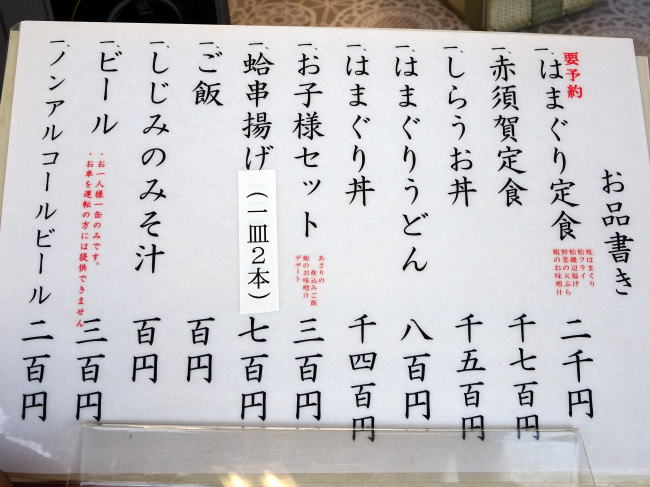 お品書き
一、はまぐり定食 二千円
要予約
焼はまぐり
蛤フライ
蛤磯辺揚げ
野菜の天ぷら
蜆のお味噌汁
一、赤須賀定食 千七百円
一、しらうお丼 千五百円
一、はまぐりうどん 八百円
一、はまぐり丼 千四百円
一、お子様セット 三百円
あさりの
炊込みご飯
蜆のお味噌汁
デザート
一、蛤串揚げ(一皿2本) 七百円
一、ご飯 百円
一、しじみのみそ汁 百円
一、ビール 三百円
・お一人様一缶のみです。
・お車を運転の方には提供できません
一、ノンアルコールビール 二百円